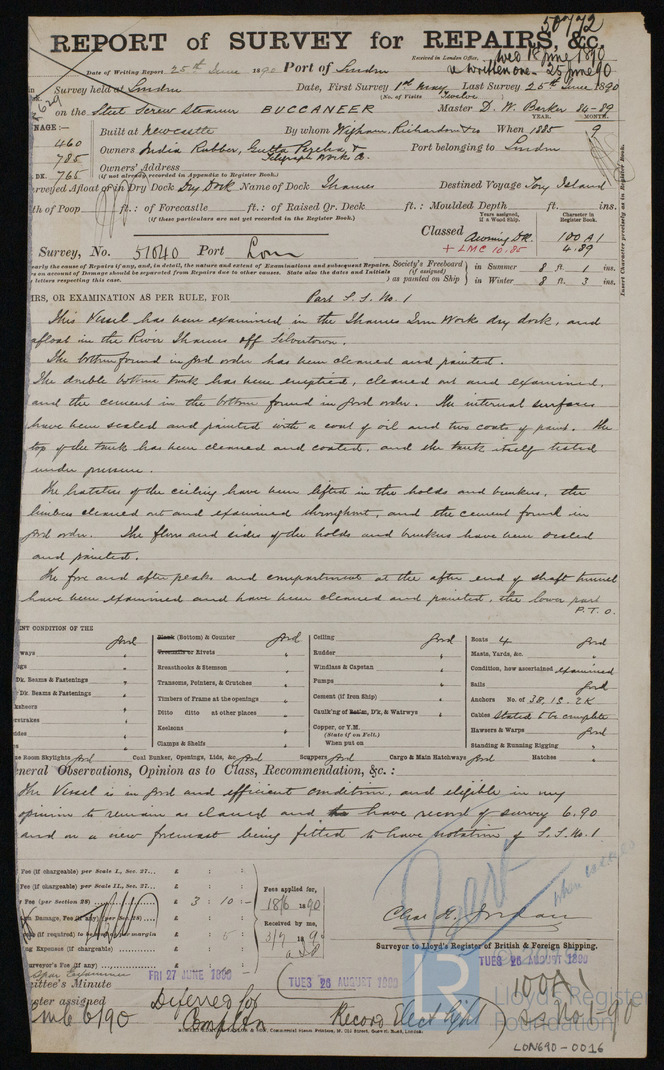 50772
REPORT of SURVEY for REPAIRS, &c.
Received in London Office, Wed 18 June 1890
Date of Writing Report 25th June 1890 Port of London
& written one - 25 June 90
Survey held at London Date, First Survey 1st May Last Survey 25th June 1890
(No. of Visits Twelve)
on the Steel Screw Steamer BUCCANEER Master D. W. Barker 34-89
YEAR. MONTH.
NAGE:—
460
785
DK. 765
Built at Newcastle By whom Wigham, Richardson & Co When 1885 9
Owners India Rubber, Gutta Percha & Telegraph Work Co. Port belonging to London
Owners' Address
(if not already recorded in Appendix to Register Book.)
Surveyed Afloat or in Dry Dock Dry Dock Name of Dock Thames Destined Voyage Tory Island
th of Poop ft.: of Forecastle ft.: of Raised Qr. Deck ft.: Moulded Depth ft. ins.
(if these particulars are not yet recorded in the Register Book.)
Years assigned, if a Wood Ship. Character in Register Book.
Classed Awning Dk. 100 A 1
+ LMC 10.85 4.89
Insert Character precisely as in Register Book.
Survey, No. 51040 Port Lon
early the cause of Repairs if any, and, in detail, the nature and extent of Examinations and subsequent Repairs.
s on account of Damage should be separated from Repairs due to other causes. State also the dates and Initials
letters respecting this case.
Society's Freeboard (if assigned) as painted on Ship
in Summer 8 ft. 1 ins.
in Winter 8 ft. 3 ins.
IRS, OR EXAMINATION AS PER RULE, FOR Part S. S. No. 1
This Vessel has been examined in the Thames Iron Works dry dock, and
afloat in the River Thames off Silvertown.
The bottom found in good order has been cleaned and painted.
The double bottom tank has been emptied, cleaned out and examined,
and the cement in the bottom found in good order. The internal surfaces
have been scaled and painted with a coat of oil and two coats of paint. The
top of the tank has been cleaned and coated, and the tank itself tested
under pressure.
The hatches of the ceiling have been lifted in the holds and bunkers, the
limbers cleaned out and examined throughout, and the cement found in
good order. The floors and sides of the holds and bunkers have been scaled
and painted.
The fore and after peaks and compartments at the after end of shaft tunnel
have been examined and have been cleaned and painted, the lower part
P.T.O.
NT CONDITION OF THE
good
ways
Dk. Beams & Fastenings
Dk. Beams & Fastenings
Plank (Bottom) & Counter good
Treenails or Rivets
Breasthooks & Stemson
Transoms, Pointers, & Crutches
Timbers of Frame at the openings
Ditto ditto at other places
Keelsons
Clamps & Shelfs
Ceiling good
Rudder
Windlass & Capstan
Pumps
Cement (if Iron Ship)
Caulking of Bottm, D'k, & Watrwys
Copper, or Y.M.
(State if on Felt.)
When put on
Boats 4 good
Masts, Yards, &c.
Condition, how ascertained examined
Sails good
Anchors No. of 3B, 1S, 2K
Cables stated to be complete
Hawsers & Warps good
Standing & Running Rigging
ne Room Skylights good Coal Bunker, Openings, Lids, &c. good Scuppers good Cargo & Main Hatchways good Hatches
neral Observations, Opinion as to Class, Recommendation, &c.:
The Vessel is in good and efficient condition, and eligible in my
opinion to remain as classed and to have record of survey 6.90
and on a new foremast being fitted to have notation of S. S. No. 1.
Fee (if chargeable) per Scale I., Sec. 27... £ : :
Fee (if chargeable) per Scale II., Sec. 27... £ : :
Fee (per Section 28) £ 3 : 10 : -
Damage Fee (if any) (per Sec. 28)
ng Expenses (if chargeable) £
urveyor's Fee (if any)
Fees applied for,
18/6 1890
Received by me,
3/7 1890
Chas. H. Jordan
Surveyor to Lloyd's Register of British & Foreign Shipping.
ittee's Minute FRI 27 JUNE 1890
TUES 26 AUGUST 1890
TUES 26 AUGUST 1890
cter assigned
Deferred for Completn
LMC 6/90
Record Elect light
100A1
SS No 1-90
Lloyd's Register
Foundation
LON690-0016